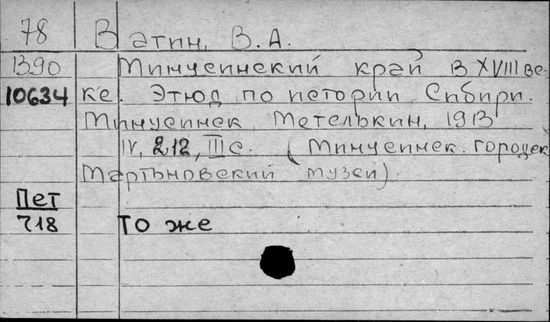 78 Ватин, В. А.
1390 Минусинский край в XVIII ве-
10634 ке. Этюд по истории Сибири.
Минусинск, Метелькин, 1913
IV, 212, III с. (Минусинск. городск.
Мартьновский музей).
Пет
718 То же